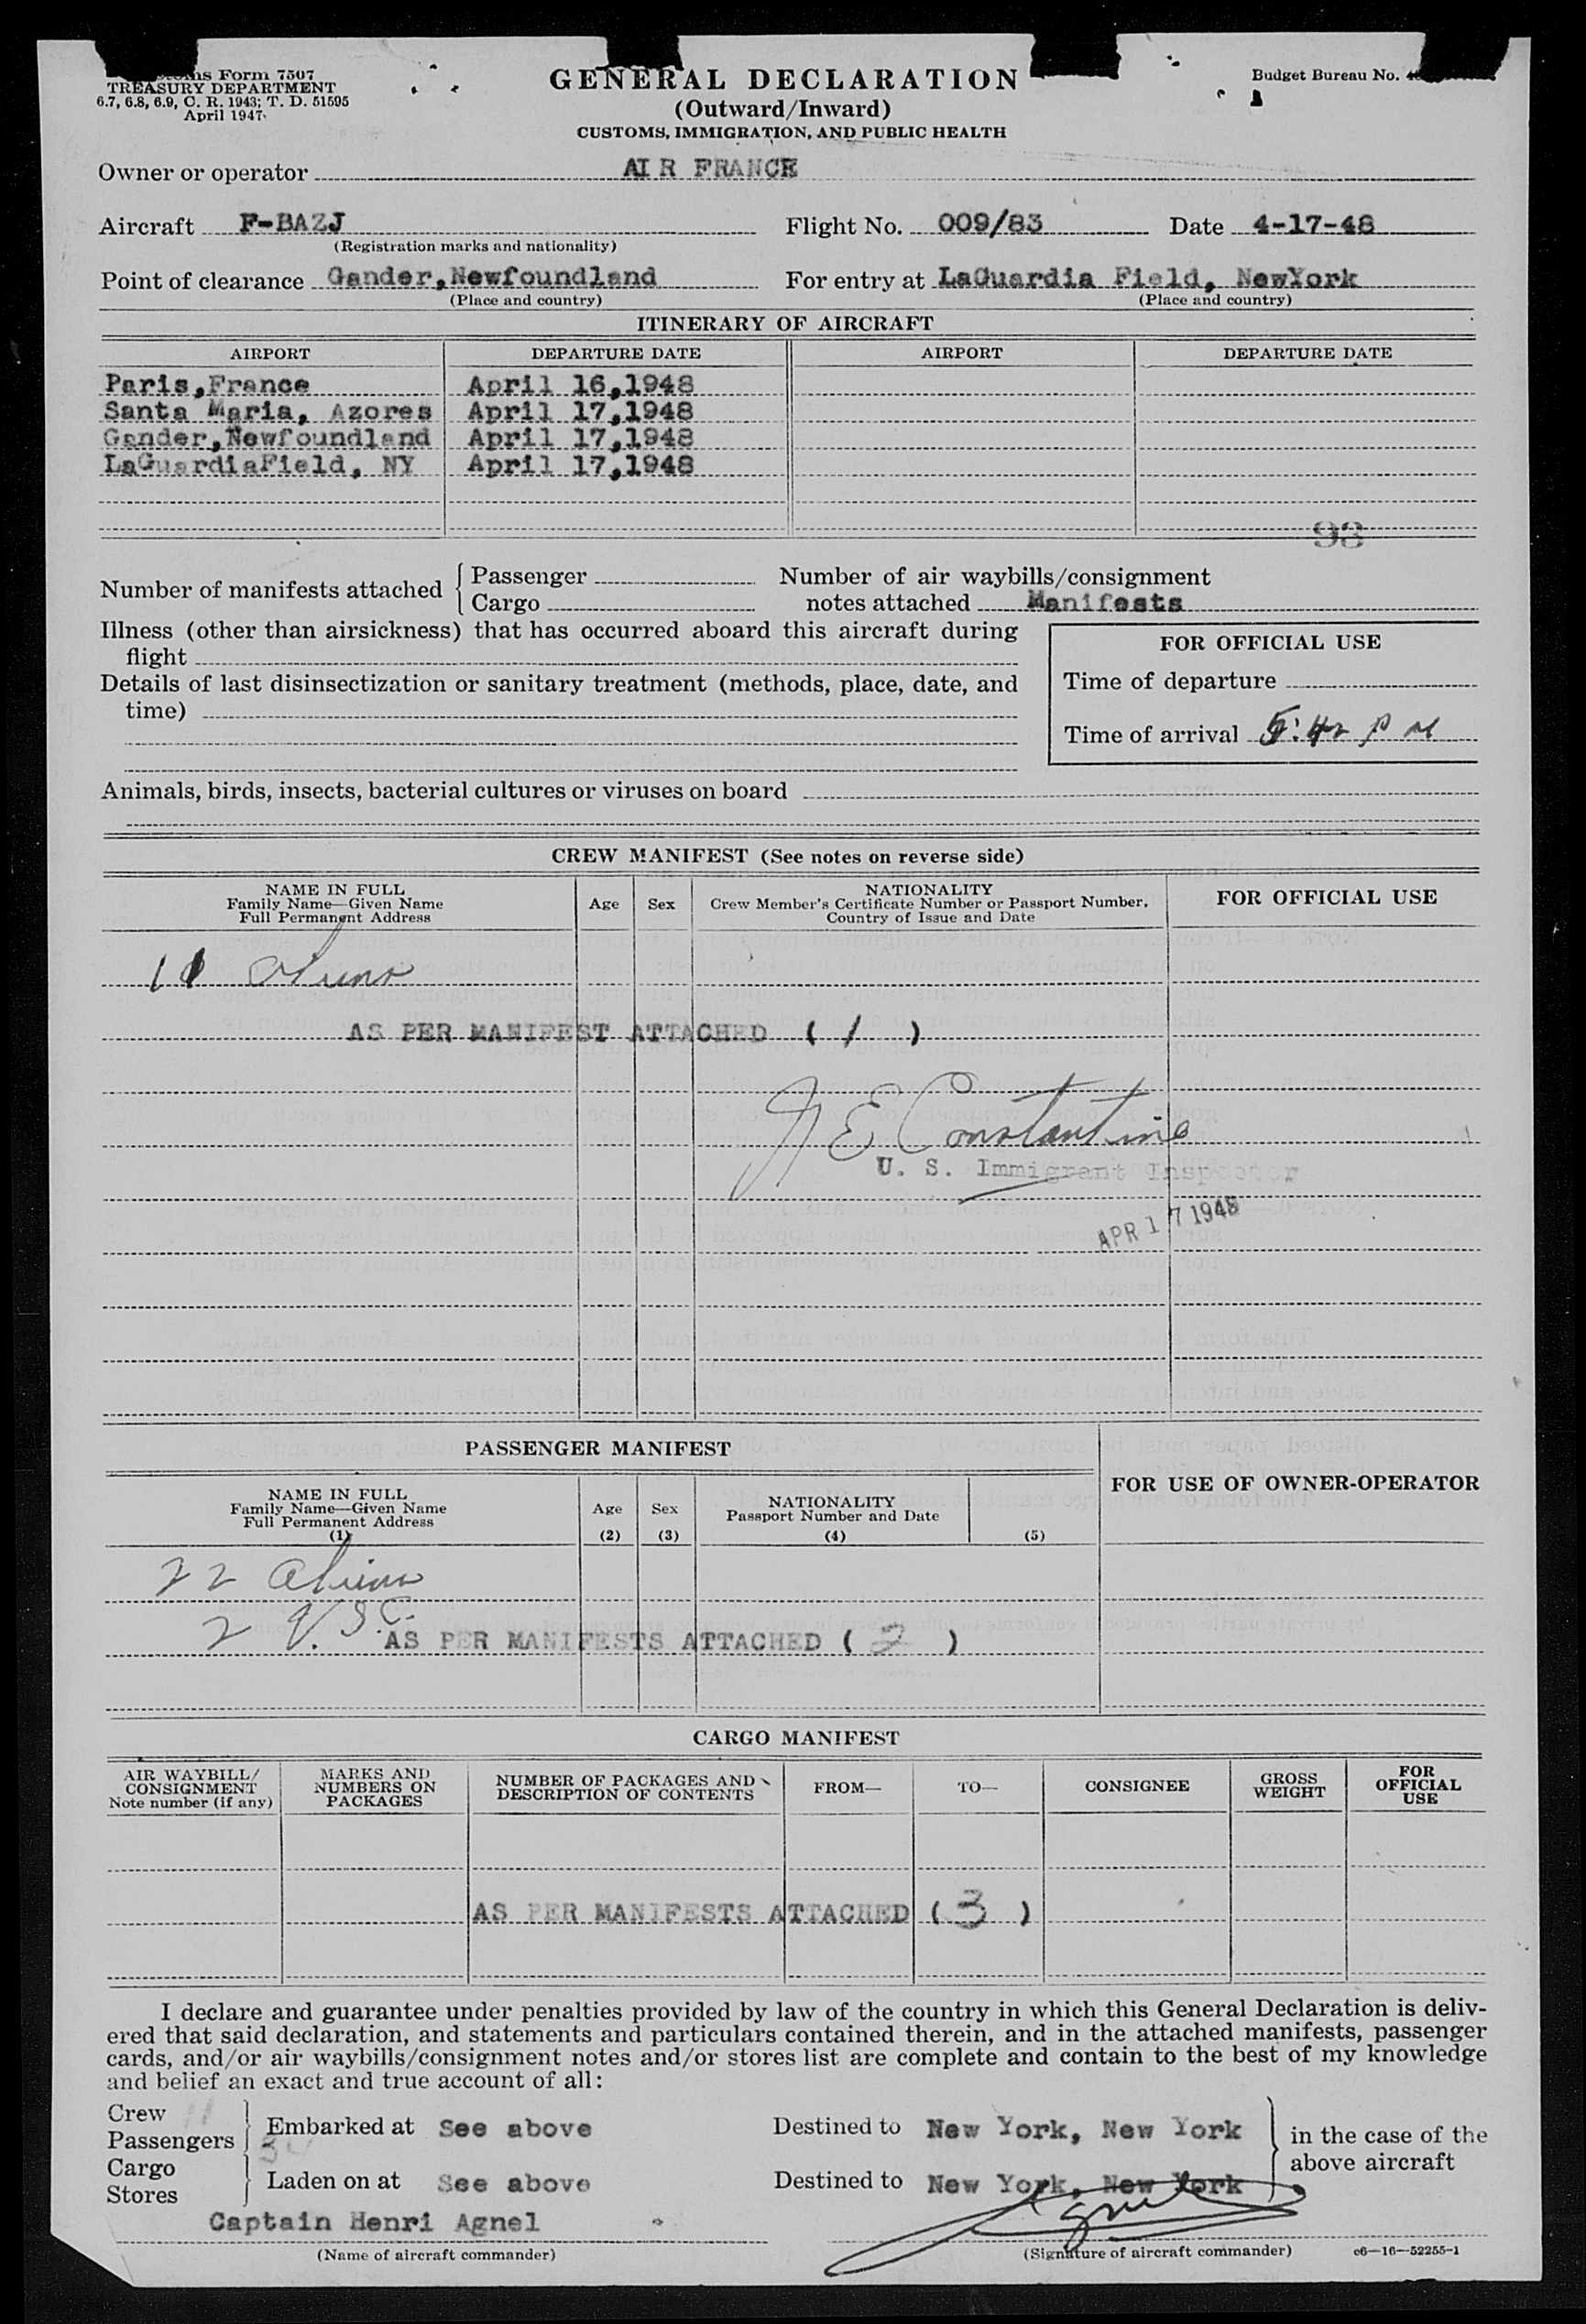 ms Form 7507
TREASURY DEPARTMENT
6.7, 6.8, 6.9, C. R. 1943; T. D. 51595
April 1947
GENERAL DECLARATION
(Outward/Inward)
CUSTOMS, IMMIGRATION, AND PUBLIC HEALTH
Budget Bureau No.
Owner or operator AIR FRANCE
Aircraft F-BAZJ Flight No. 009/83 Date 4-17-48
(Registration marks and nationality)
Point of clearance Gander,Newfoundland For entry at LaGuardia Field, NewYork
(Place and country) (Place and country)
ITINERARY OF AIRCRAFT
AIRPORT DEPARTURE DATE AIRPORT DEPARTURE DATE
Paris,France April 16,1948
Santa Maria, Azores April 17,1948
Gander,Newfoundland April 17,1948
LaGuardiaField, NY April 17,1948
93
Number of manifests attached Passenger Number of air waybills/consignment
Cargo notes attached Manifests
Illness (other than airsickness) that has occurred aboard this aircraft during
flight
Details of last disinsectization or sanitary treatment (methods, place, date, and
time)
FOR OFFICIAL USE
Time of departure
Time of arrival 5:42 P M
Animals, birds, insects, bacterial cultures or viruses on board
CREW MANIFEST (See notes on reverse side)
NAME IN FULL
Family Name—Given Name
Full Permanent Address
Age Sex
NATIONALITY
Crew Member's Certificate Number or Passport Number,
Country of Issue and Date
FOR OFFICIAL USE
11 Aliens
AS PER MANIFEST ATTACHED ( 1 )
E Constantine
U. S. Immigrant Inspector
APR 17 1948
PASSENGER MANIFEST
FOR USE OF OWNER-OPERATOR
NAME IN FULL
Family Name—Given Name
Full Permanent Address
(1)
Age
(2)
Sex
(3)
NATIONALITY
Passport Number and Date
(4) (5)
22 Aliens
2 U.S.C.
AS PER MANIFESTS ATTACHED ( 2 )
CARGO MANIFEST
AIR WAYBILL/
CONSIGNMENT
Note number (if any)
MARKS AND
NUMBERS ON
PACKAGES
NUMBER OF PACKAGES AND
DESCRIPTION OF CONTENTS
FROM— TO— CONSIGNEE
GROSS
WEIGHT
FOR
OFFICIAL
USE
AS PER MANIFESTS ATTACHED ( 3 )
I declare and guarantee under penalties provided by law of the country in which this General Declaration is deliv-
ered that said declaration, and statements and particulars contained therein, and in the attached manifests, passenger
cards, and/or air waybills/consignment notes and/or stores list are complete and contain to the best of my knowledge
and belief an exact and true account of all:
Crew 11
Passengers
Embarked at See above Destined to New York, New York
in the case of the
above aircraft
Cargo
Stores
Laden on at See above Destined to New York, New York
Captain Henri Agnel Agnel
(Name of aircraft commander) (Signature of aircraft commander) c6—16—52255-1